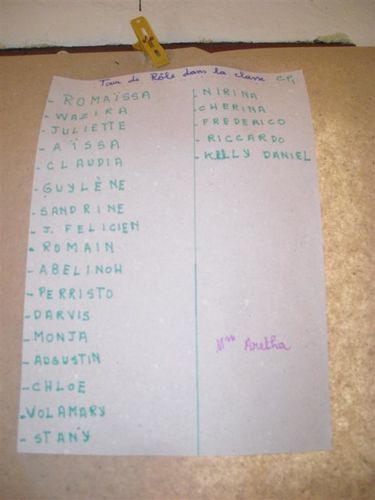 Tour de Rôle dans la classe CP1
- ROMAÏSSA
- WAZIRA
- JULIETTE
- AÏSSA
- CLAUDIA
- GUYLÈNE
- SANDRINE
- J. FELICIEN
- ROMAIN
- ABELINOH
- PERRISTO
- DARVIS
- MONJA
- AUGUSTIN
- CHLOE
- VOLAMARY
- STANY
- NIRINA
- CHERINA
- FREDERICO
- RICCARDO
- KELLY DANIEL
Mme Aretha